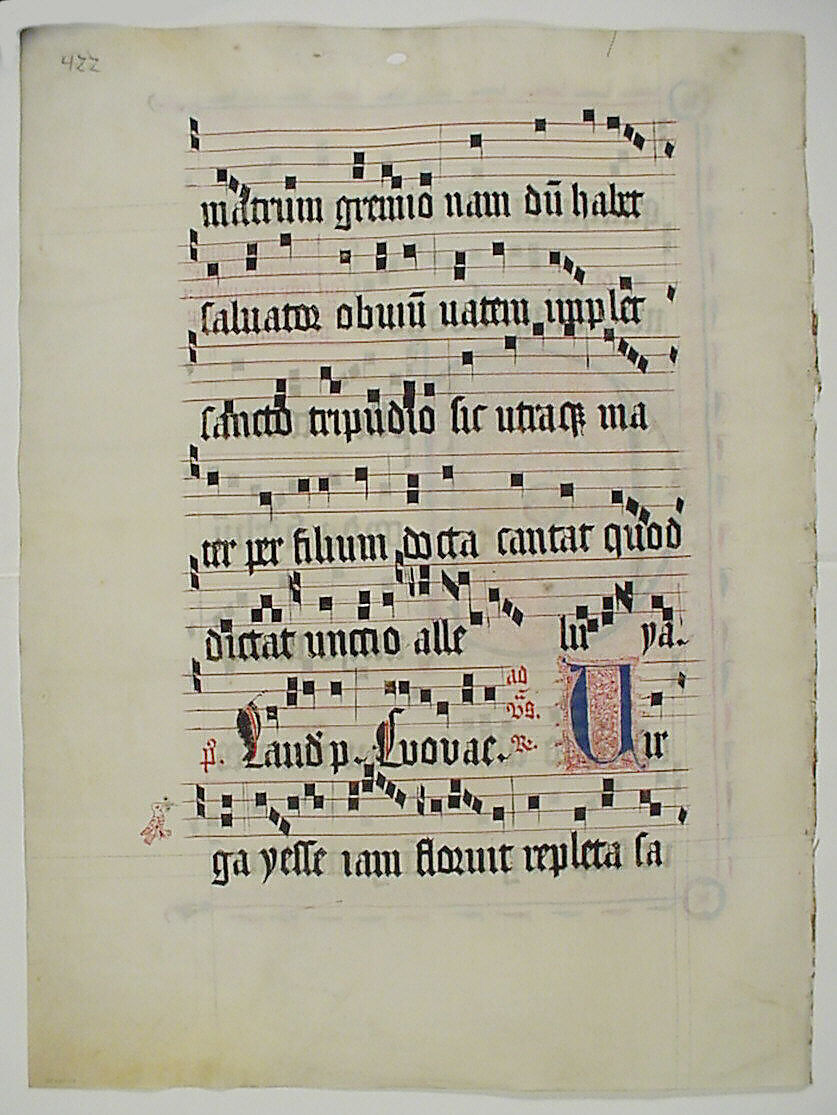 422
matrum gremio nam dū habet
saluator obuiū uatem implet
sancto tripudio sic utraqꝫ ma
ter per filium docta cantat quod
dictat unctio alle lu ya.
p̄. Laud p. Euovae. ad vs̄. ꝶ. Uir
ga yesse iam floruit repleta sa